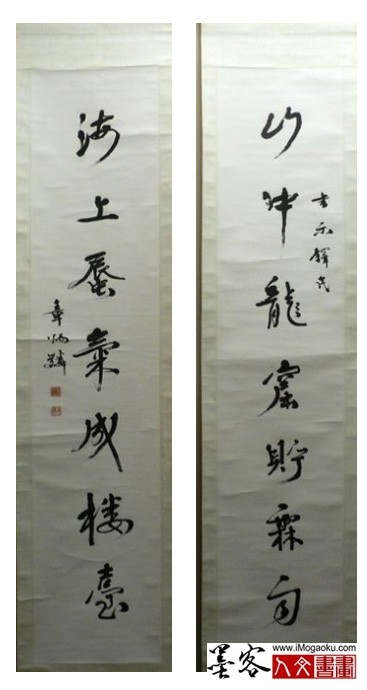 山中龍窟貯霖雨
書示鐸民
海上蜃氣成樓臺
章炳麟
墨客
www.iMogaoku.com
人文書畫